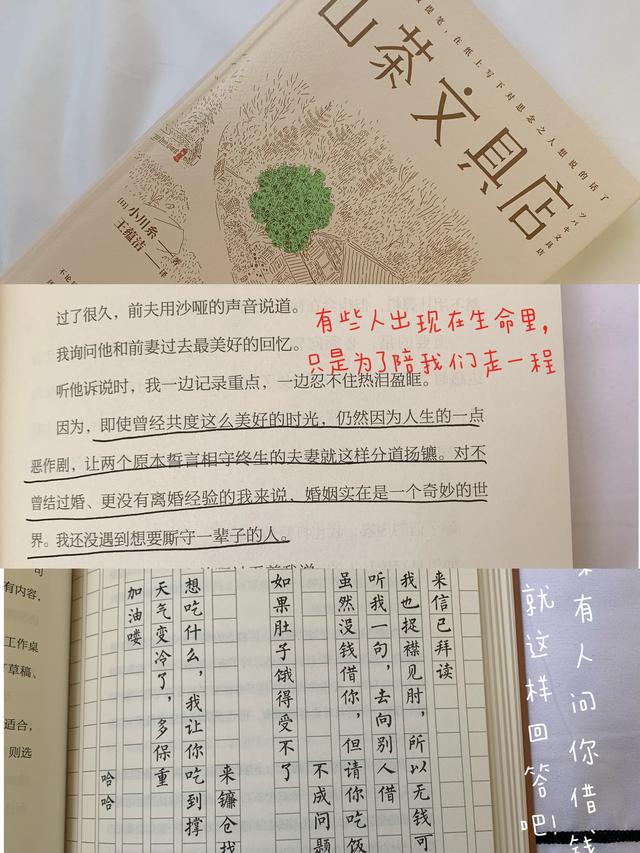 提笔，在纸上写下对思念之人想说的话了
山茶文具店
ツバキ文具店
[日]小川糸 著
王蕴洁 译
过了很久，前夫用沙哑的声音说道。
我询问他和前妻过去最美好的回忆。
听他诉说时，我一边记录重点，一边忍不住热泪盈眶。
因为，即使曾经共度这么美好的时光，仍然因为人生的一点
恶作剧，让两个原本誓言相守终生的夫妻就这样分道扬镳。对不
曾结过婚、更没有离婚经验的我来说，婚姻实在是一个奇妙的世
界。我还没遇到想要厮守一辈子的人。
有些人出现在生命里，
只是为了陪我们走一程
有人问你借钱
就这样回答吧！
来信已拜读
我也捉襟见肘，所以无钱可
听我一句，去向别人借
虽然没钱借你，但请你吃饭
不成问题
如果肚子饿得受不了
来镰仓找
想吃什么，我让你吃到撑
天气变冷了，多保重
加油喽
哈哈
可
有内容，
工作桌
草稿、
适合，
则选